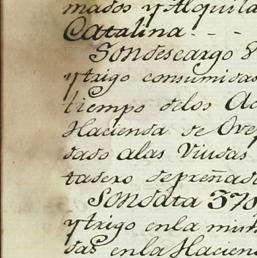 mados y Alquila
Catalina
Son descargo 8
y trigo consumidas
tiempo delos Ac
Hacienda de Ove
dado alas Viudas
tasero depreñad
Son data 370
y trigo enla mism
das enla Hacien